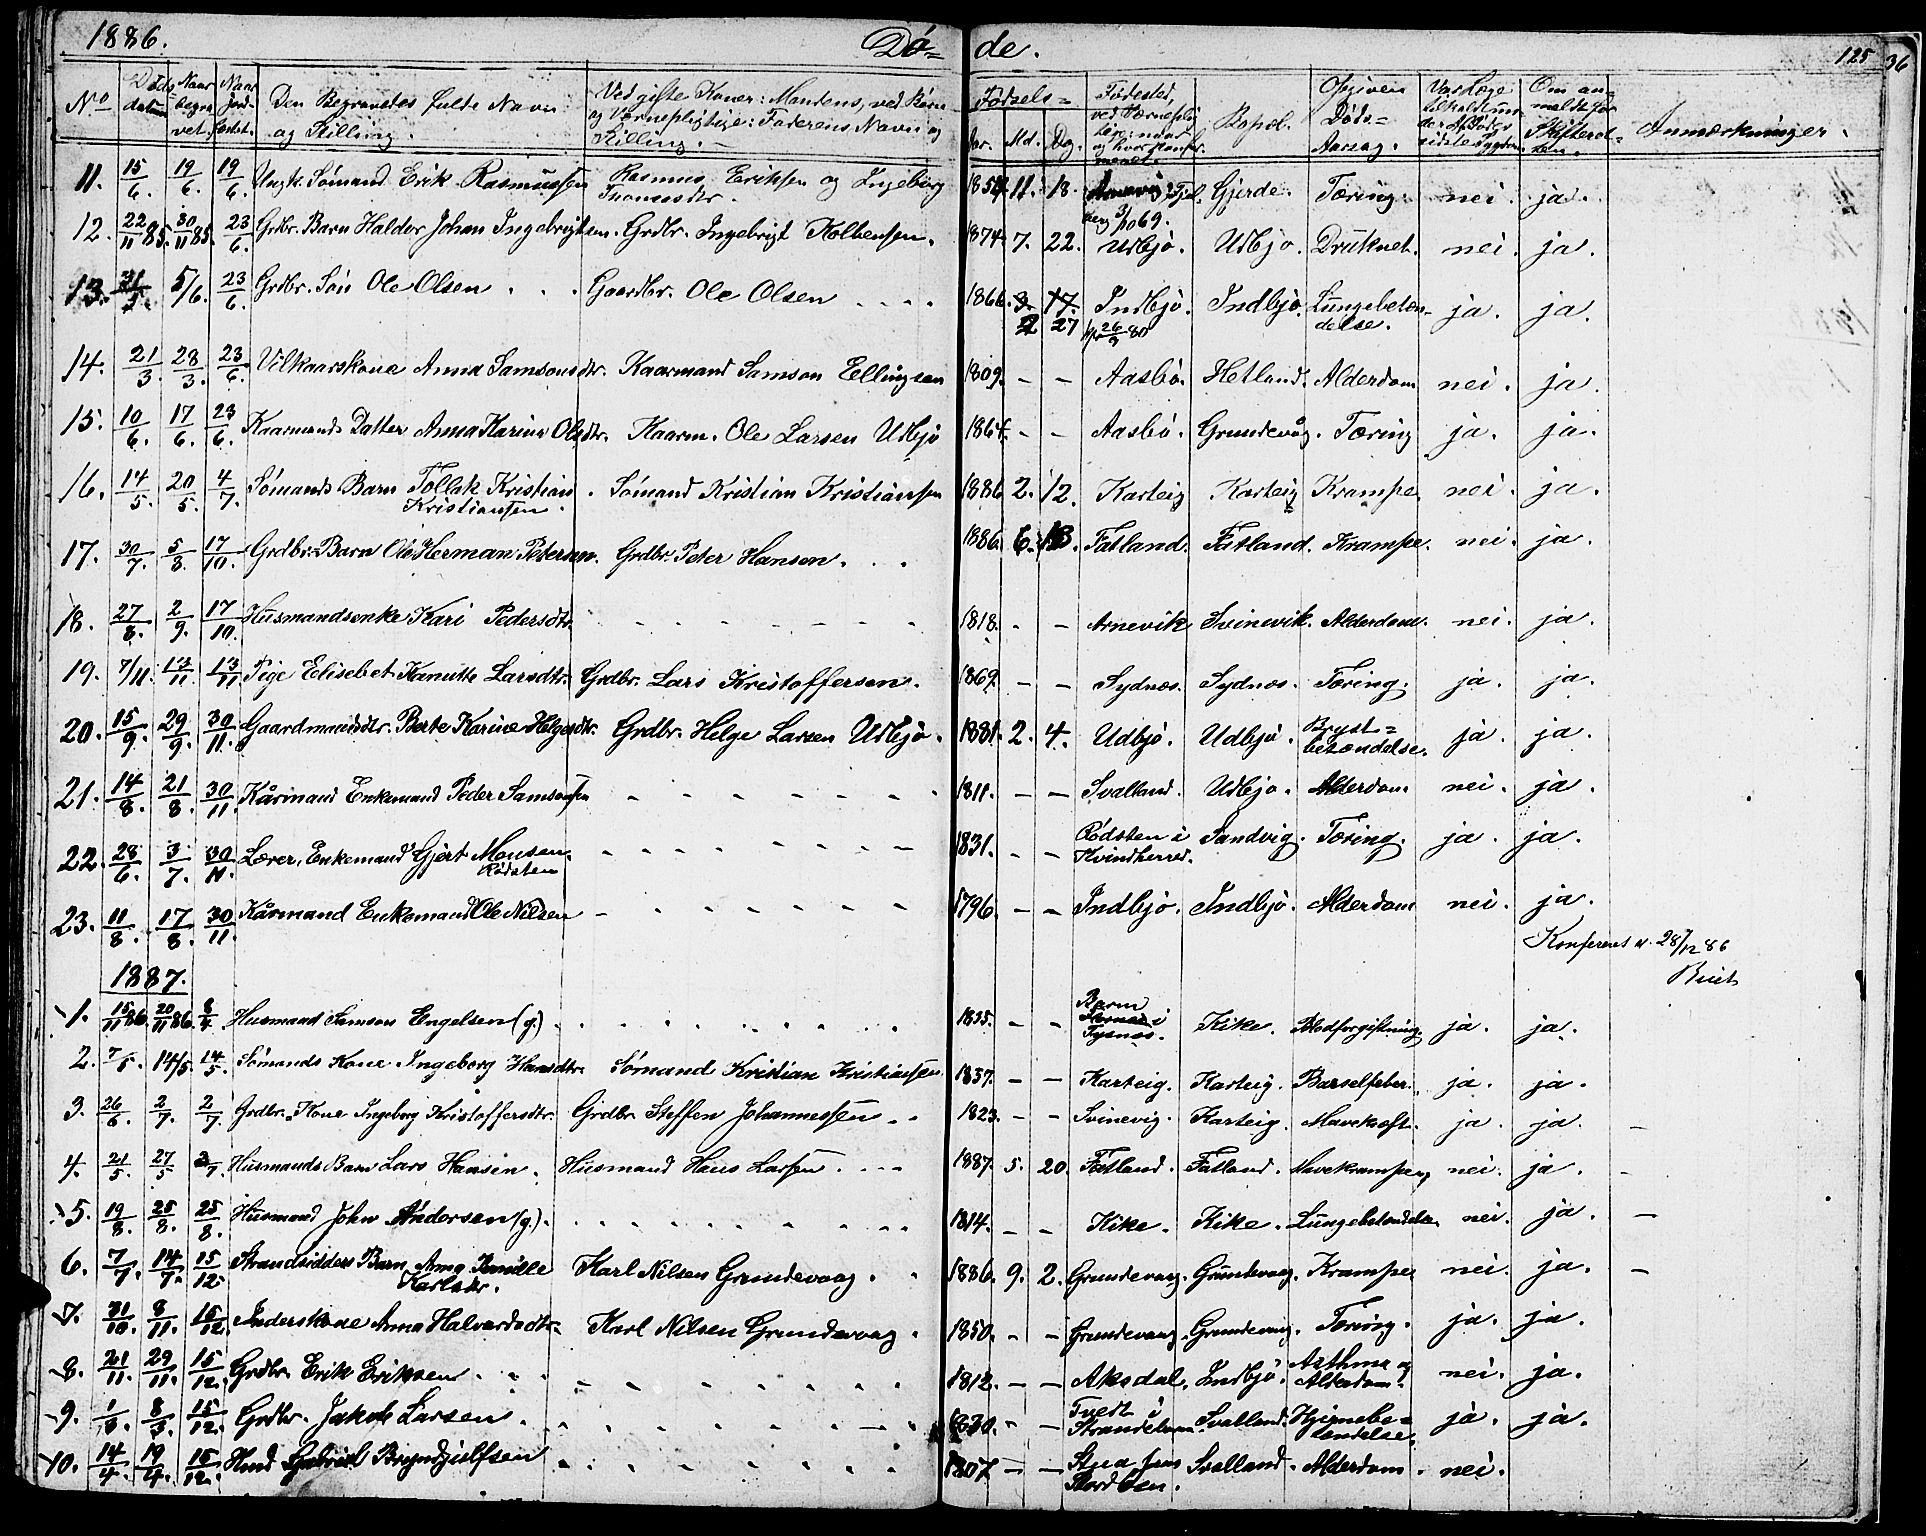 1886. Dö= de. 125 36
No Döds datum Naar begra vet. Naar Jord- fæstet. Den Begravedes fulde Navn og Stilling. Ved gifte Koner: Mandens, ved Börn og Værnepligtige: Faderens Navn og Stilling. Födsels= Aar. Md. Dag. Födested, Bopæl. Opgiven Döds= Aarsag. Var Læge Om an- meldt for Skifteret- ten. Anmærkninger.
11. 15/6. 19/6. 19/6. Ungk. Sömand Erik Rasmussen Rasmus Eriksen og Ingeborg Thomasdtr. 11. 18. Gjerde. Tæring. nei. ja.
12. 22/11 85. 30/11 85. 23/6. Grdbr. Barn Haldor Johan Ingebrigtsen. Grdbr. Ingebrigt Kolbensen. 1874. 7. 22. Udbjö. Udbjö. Druknet. nei. ja.
13. 5/6. 23/6. Grdbr. Sön Ole Olsen . . . Gaardbr. Ole Olsen . . . . 1866. 3. 17. Indbjö. Indbjö. Lungebeten- delse. ja. ja.
2 27 26/9 80
14. 21/3. 28/3. 23/6. Vilkaarskone Anna Samsonsdtr. Kaarmand Samson Ellingsen 1809. – – Aasbö. Hetland. Alderdom nei. ja.
15. 10/6. 17/6. 23/6. Kaarmands Datter Anna Karine Olsdtr. Kaarm. Ole Larsen Udbjö 1864. – – Aasbö. Grundevåg. Tæring ja. ja.
16. 14/5. 20/5. 4/7. Sömands Barn Tollak Kristian Kristiansen. Sömand Kristian Kristiansen 1886 2. 12. Karteig Karteig Krampe nei. ja.
17. 30/7. 5/8. 17/10. Grdbr. Barn Ole Herman Petersen. Grdbr. Peter Hansen. . . 1886. 6. 13. Fatland. Fatland. Krampe. nei. ja.
18. 27/8. 2/9. 17/10. Husmandsenke Kari Pedersdtr. 1818. – – Arnevik Svinevik. Alderdom. nei. ja.
19. 7/11. 13/11. 13/11. Pige Elisebet Kanutte Larsdtr. Grdbr. Lars Kristoffersen. 1869. – – Sydnes. Sydnes. Tæring. ja. ja.
20. 15/9. 29/9. 30/11. Gaardmandsdtr. Berte Karine Helgesdtr. Grdbr. Helge Larsen Udbjö. 1881. 2. 4. Udbjö. Udbjö. Bryst= betændelse. ja. ja.
21. 14/8. 21/8. 30/11. Kårmand Enkemand Peder Samsonsen 1811. – – Svalland. Udbjö. Alderdom. nei. ja.
22. 28/6. 3/7. 30/11. Lærer, Enkemand Gjert Monsen Rödsten 1831. – – Rödsten i Kvindherred. Sandvig. Tæring. ja. ja.
23. 11/8. 17/8. 30/11. Kårmand Enkemand Ole Nilsen 1796. – – Indbjö. Indbjö. Alderdom nei. ja.
Konfereret d. 28/12 86
1887.
1. 15/11 86. 20/11 86. 8/4. Husmand Samson Engelsen (g.) 1835. – – i Tysnes. Kike. Blodforgiftning. ja. ja.
2. 7/5. 14/5. 14/5. Sömands Kone Ingeborg Hansdtr. Sömand Kristian Kristiansen 1837. – – Karteig. Karteig. Barselfeber. ja. ja.
3. 26/6. 2/7. 2/7. Grdbr. Kone Ingeborg Kristoffersdtr. Grdbr. Steffen Johannessen . . 1823. – – Svinevig. Karteig. Mavekræft. ja. ja. –
4. 21/5. 27/5. 3/7. Husmands Barn Lars Hansen. Husmand Hans Larsen . . . 1887. 5. 20. Fatland. Fatland. Mavekrampe nei. ja. –
5. 19/8. 25/8. 25/8. Husmand John Andersen (g.). 1814. – – Kike. Kike. Lungebetændelse. nei. ja. –
6. 7/7. 14/7. 15/12. Strandsidders Barn Anna Karlsdtr. Karl Nilsen Grundevaag. . 1886. 9. 2. Grundevaag. Grundevaag. Krampe nei. ja. –
7. 31/10. 8/11. 15/12. Inderskone Anna Halvardsdtr. Karl Nilsen Grundevaag. 1850. – – Grundevaag. Grundevaag. Tæring. ja. ja.
8. 21/11. 29/11. 15/12. Grdbr. Erik Eriksen. 1812. – – Aksdal. Indbjö. Asthma og Alderdom. nei. ja.
9. 8/3. 15/12. Grdbr. Jakob Larsen. 1830. – – Tvedt i Strandebarm. Svalland. Hjernebe= tændelse. ja. ja.
10. 14/4. 19/4. 15/12. Hmd Gabriel Brynjulfsen 1807. – – Svalland. Alderdom. nei.